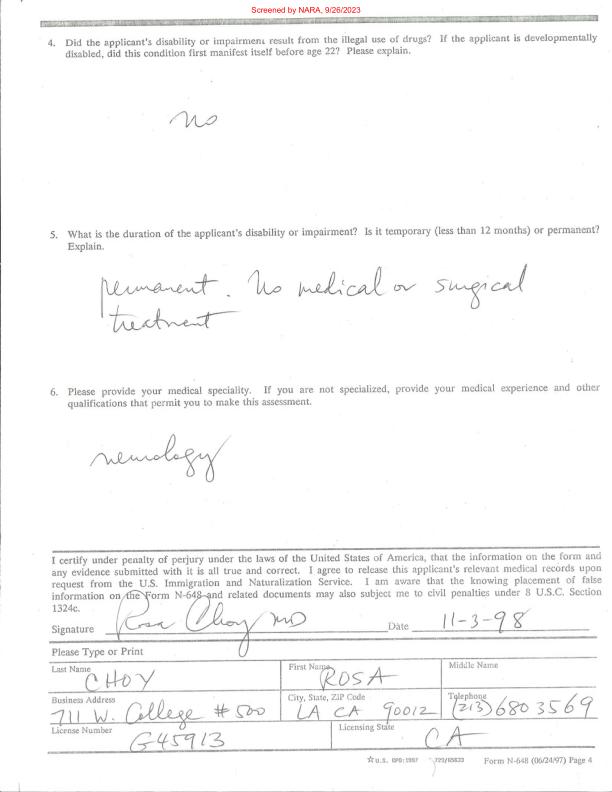 Screened by NARA, 9/26/2023
4. Did the applicant's disability or impairment result from the illegal use of drugs? If the applicant is developmentally
disabled, did this condition first manifest itself before age 22? Please explain.
no
5. What is the duration of the applicant's disability or impairment? Is it temporary (less than 12 months) or permanent?
Explain.
permanent. No medical or surgical
treatment
6. Please provide your medical speciality. If you are not specialized, provide your medical experience and other
qualifications that permit you to make this assessment.
neurology
I certify under penalty of perjury under the laws of the United States of America, that the information on the form and
any evidence submitted with it is all true and correct. I agree to release this applicant's relevant medical records upon
request from the U.S. Immigration and Naturalization Service. I am aware that the knowing placement of false
information on the Form N-648 and related documents may also subject me to civil penalties under 8 U.S.C. Section
1324c.
Signature Rosa Choy MD Date 11-3-98
Please Type or Print
Last Name First Name Middle Name
CHOY ROSA
Business Address City, State, ZIP Code Telephone
711 W. College #500 LA CA 90012 (213) 680 3569
License Number Licensing State
G45913 CA
☆U.S. GPO:1997 Form N-648 (06/24/97) Page 4